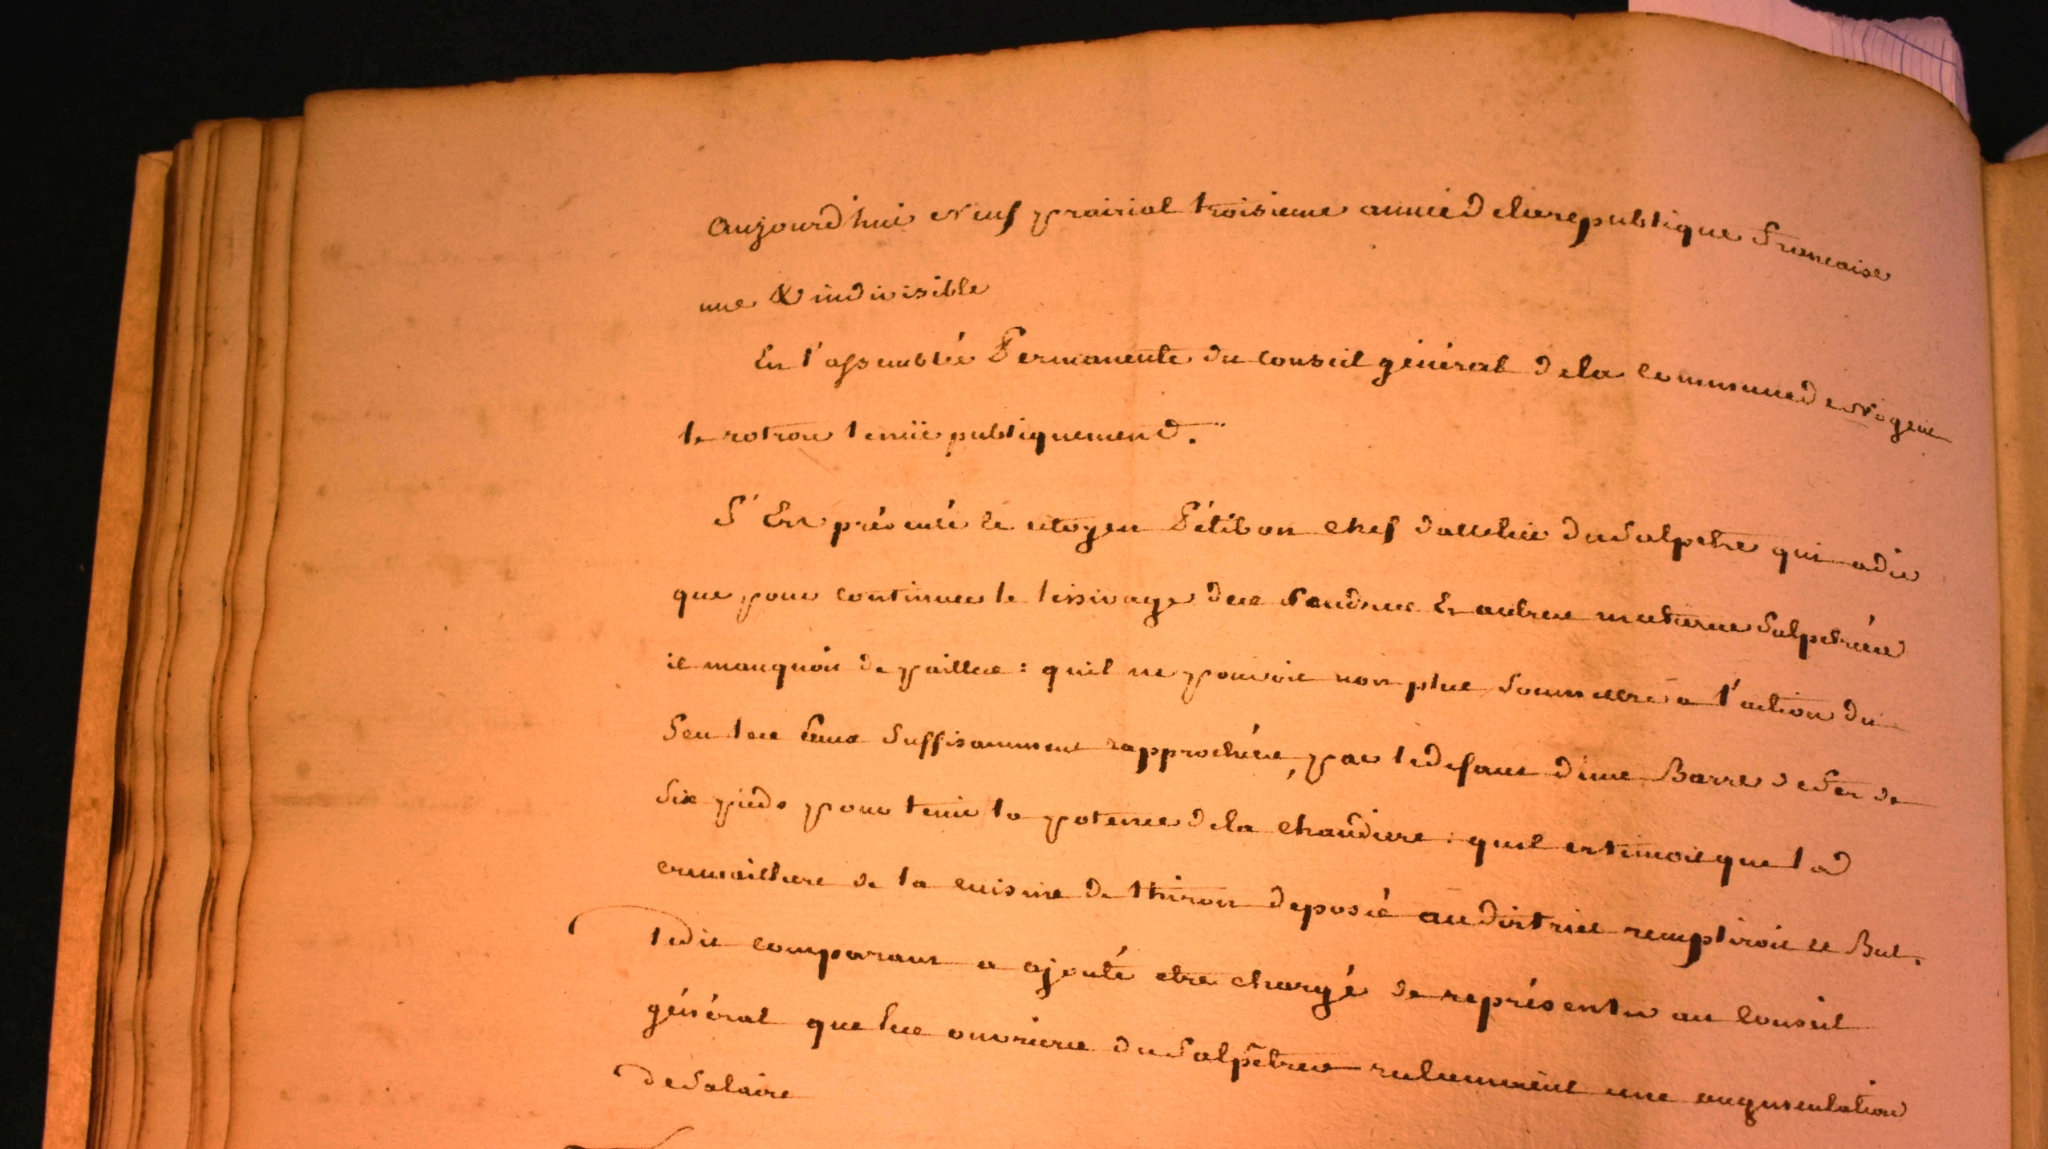 Aujourd'hui neuf prairial troisieme année de la republique francaise
une & indivisible
En l'assemblée Permanente du conseil général de la commune de Nogent
le rotrou tenüe publiquement.
S'Est présenté le citoyen Pétibon chef d'attelier du Salpetre qui a dit
que pour continuer le lessivage des Cendres Et autres matieres Salpetrées
il manquoit de pailles : quil ne pouvoit non plus Soumettre a l'action du
feu les Eaux Suffisamment rapprochées, par le defaut d'une Barre de Fer de
Six pieds pour tenir la potence de la chaudiere : quil estimoit que la
cremaillere de la cuisine de thiron deposée au district rempliroit ce But.
ledit comparant a ajouté etre chargé de représenter au Conseil
général que les ouvriers du Salpêtres reclamoient une augmentation
de Salaire